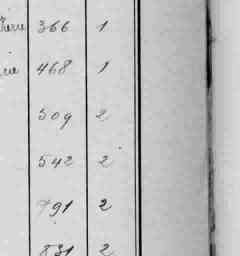 366 1
468 1
509 2
542 2
791 2
831 2